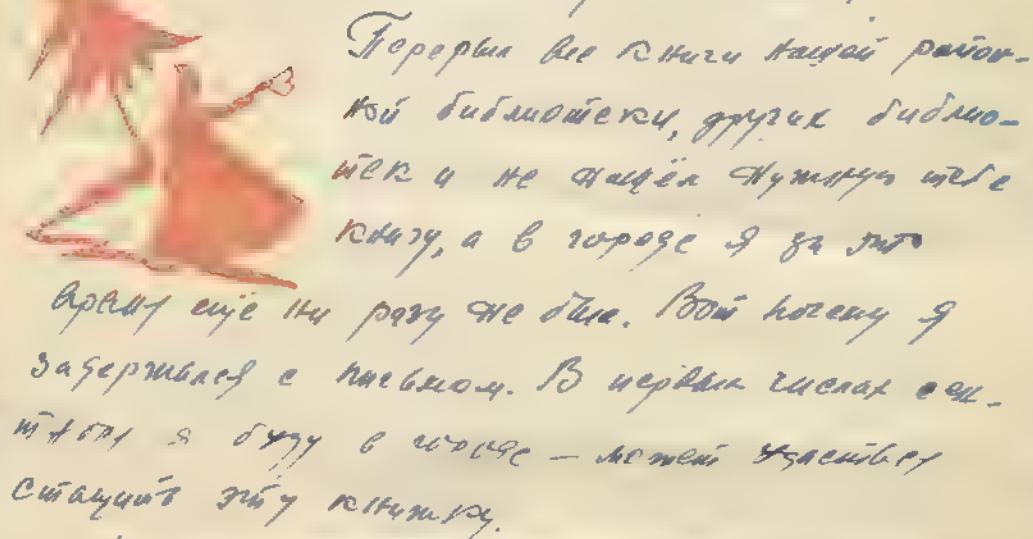 Перерыл все книги нашей район-
ной библиотеки, других библио-
тек и не нашёл нужную тебе
книгу, а в городе я за это
время ещё ни разу не был. Вот почему я
задержался с письмом. В первых числах сен-
тября я буду в городе – может удастся
стащить эту книжку.